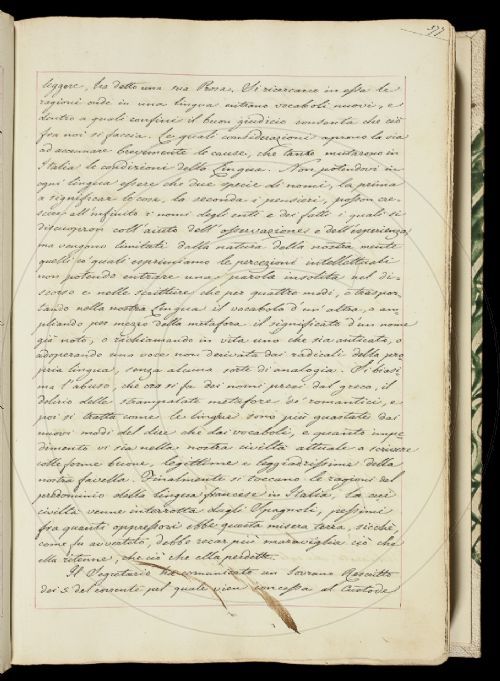 577
leggere, ha detto una sua Prosa. Si ricercano in essa le
ragioni onde in una lingua entrano vocaboli nuovi, e
dentro a quale confine il buon giudicio consenta che ciò
fra noi si faccia. Le quali considerazioni aprono la via
ad accennare brevemente le cause, che tanto mutarono in
Italia le condizioni della Lingua. Non potendovi in
ogni lingua essere che due specie di nomi, la prima
a significar le cose, la seconda i pensieri, posson cre-
scere all'infinito i nomi degli enti e dei fatti i quali si
discuopron coll'aiuto dell'osservazione e dell'esperienza
ma vengono limitati dalla natura della nostra mente
quelli co' quali esprimiamo le percezioni intellettuali
non potendo entrare una parola insolita nel di-
scorso e nelle scritture che per quattro modi, o traspor-
tando nella nostra Lingua il vocabolo d'un'altra, o am-
pliando per mezzo della metafora il significato d'un nome
già noto, o richiamando in vita uno che sia anticato, o
adoperando una voce non derivata dai radicali della pro
pria lingua, senza alcuna sorte di analogia. Si biasi
ma l'abuso, che ora si fa dei nomi presi dal greco, il
delirio delle strampalate metafore de' romantici, e
poi si tratta come le lingue sono più guastate dai
nuovi modi del dire che dai vocaboli, e quanto impe-
dimento vi sia nella nostra civiltà attuale a scrivere
colle forme buone, legittime e leggiadrissime della
nostra favella. Finalmente si toccano le ragioni del
predominio della lingua francese in Italia, la cui
civiltà venne interrotta dagli Spagnoli, pessimi
fra quanti oppressori ebbe questa misera terra, sicchè,
come fu avvertito, debbe recar più maraviglia ciò che
ella ritenne, che ciò che ella perdette.
Il Segretario ha comunicato un Sovrano Rescritto
dei 5 del corrente pel quale vien concessa al Custode